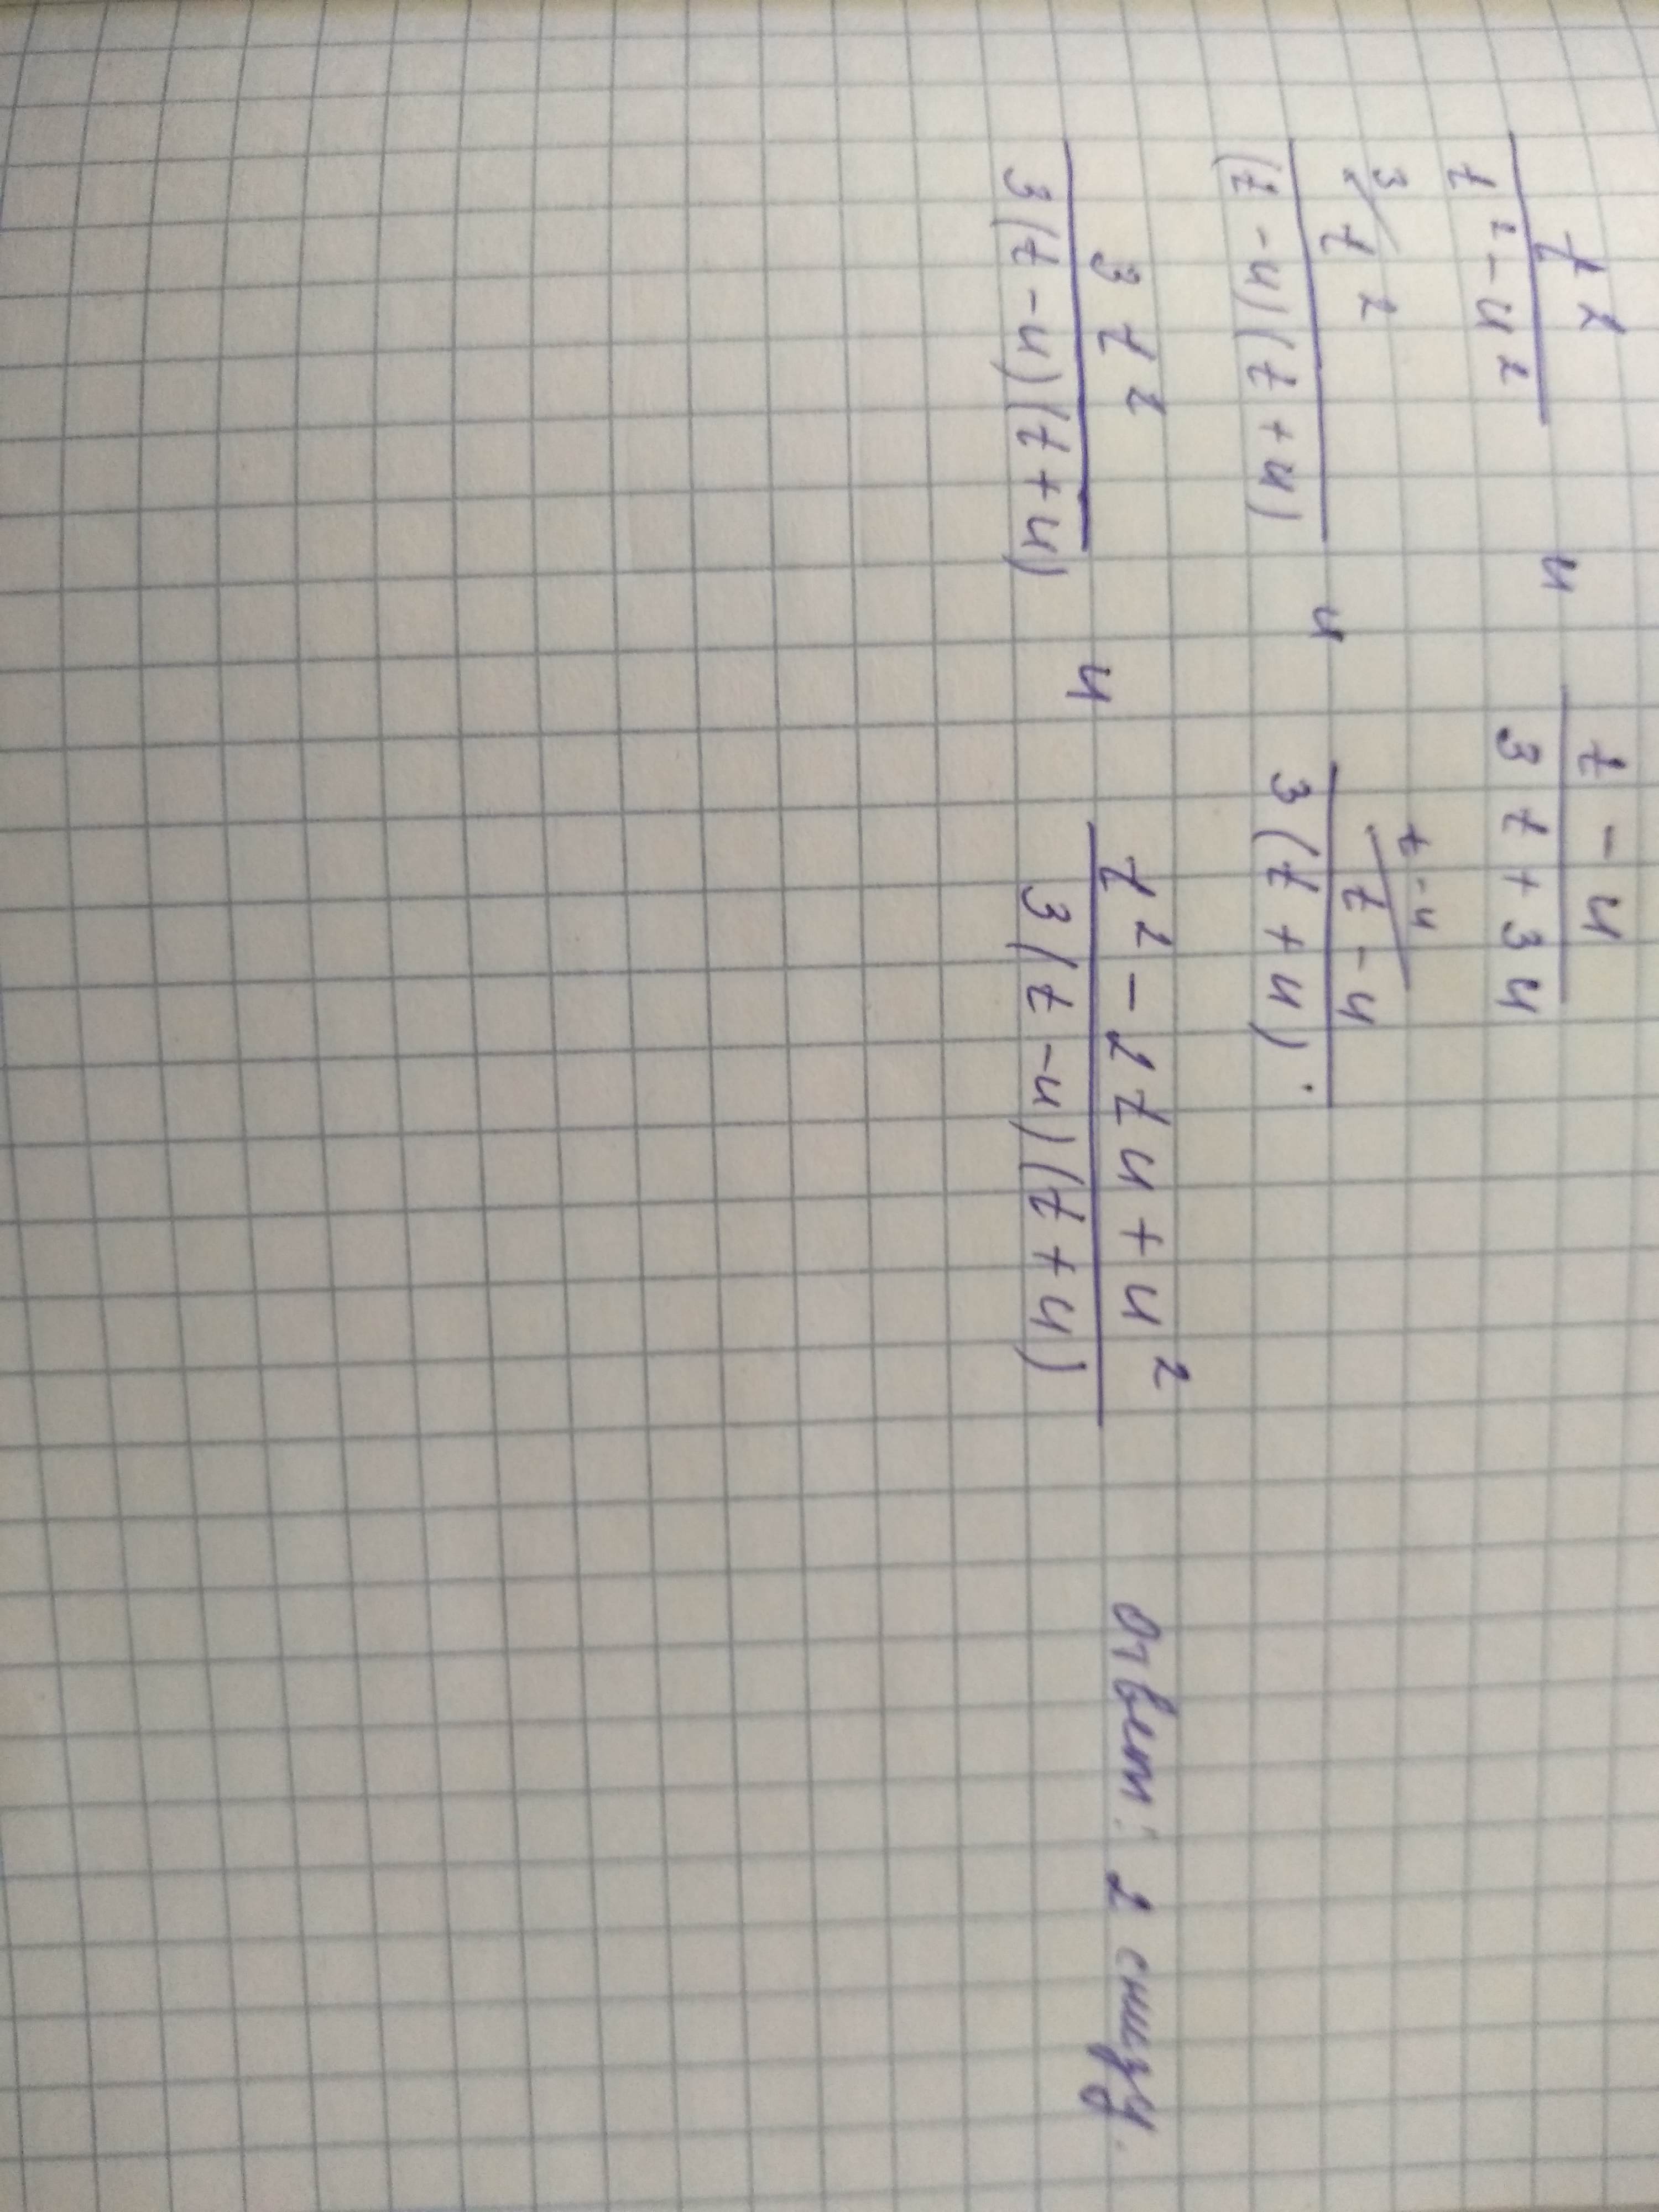 t² / (t² - u²) и (t - u) / (3t + 3u)
3/ t² / ((t - u)(t + u)) и t-u/ t - u / (3(t + u))
3t² / (3(t - u)(t + u)) и (t² - 2tu + u²) / (3(t - u)(t + u)) Ответ: 2 снизу.